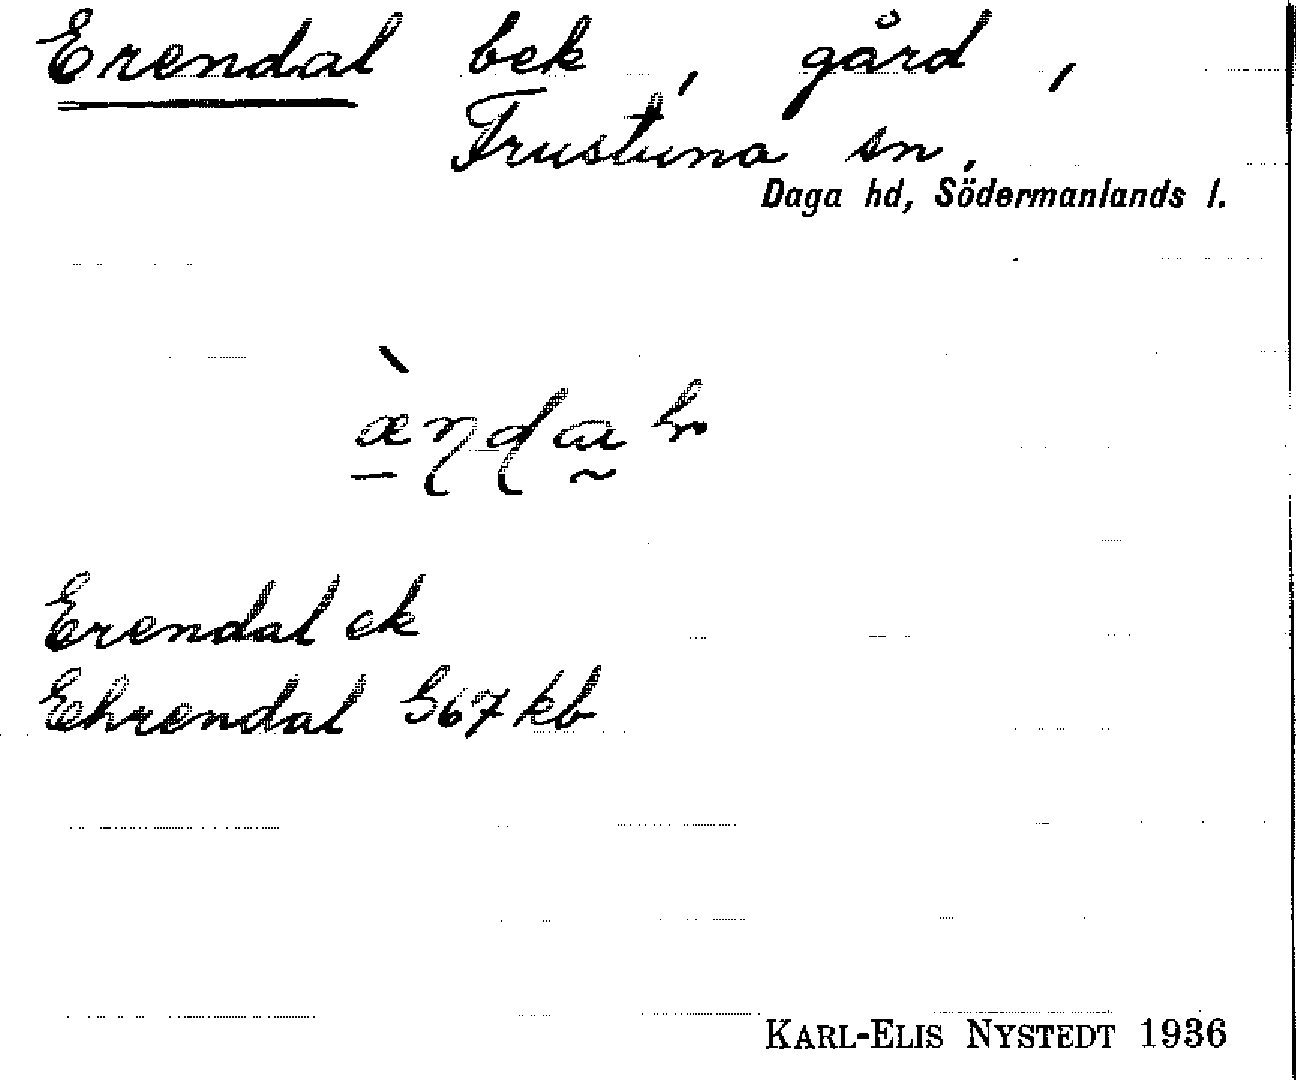 Erendal bek, gård,
Frustuna sn,
Daga hd, Södermanlands l.
Erendal ek
Ehrendal G67 kb
KARL-ELIS NYSTEDT 1936